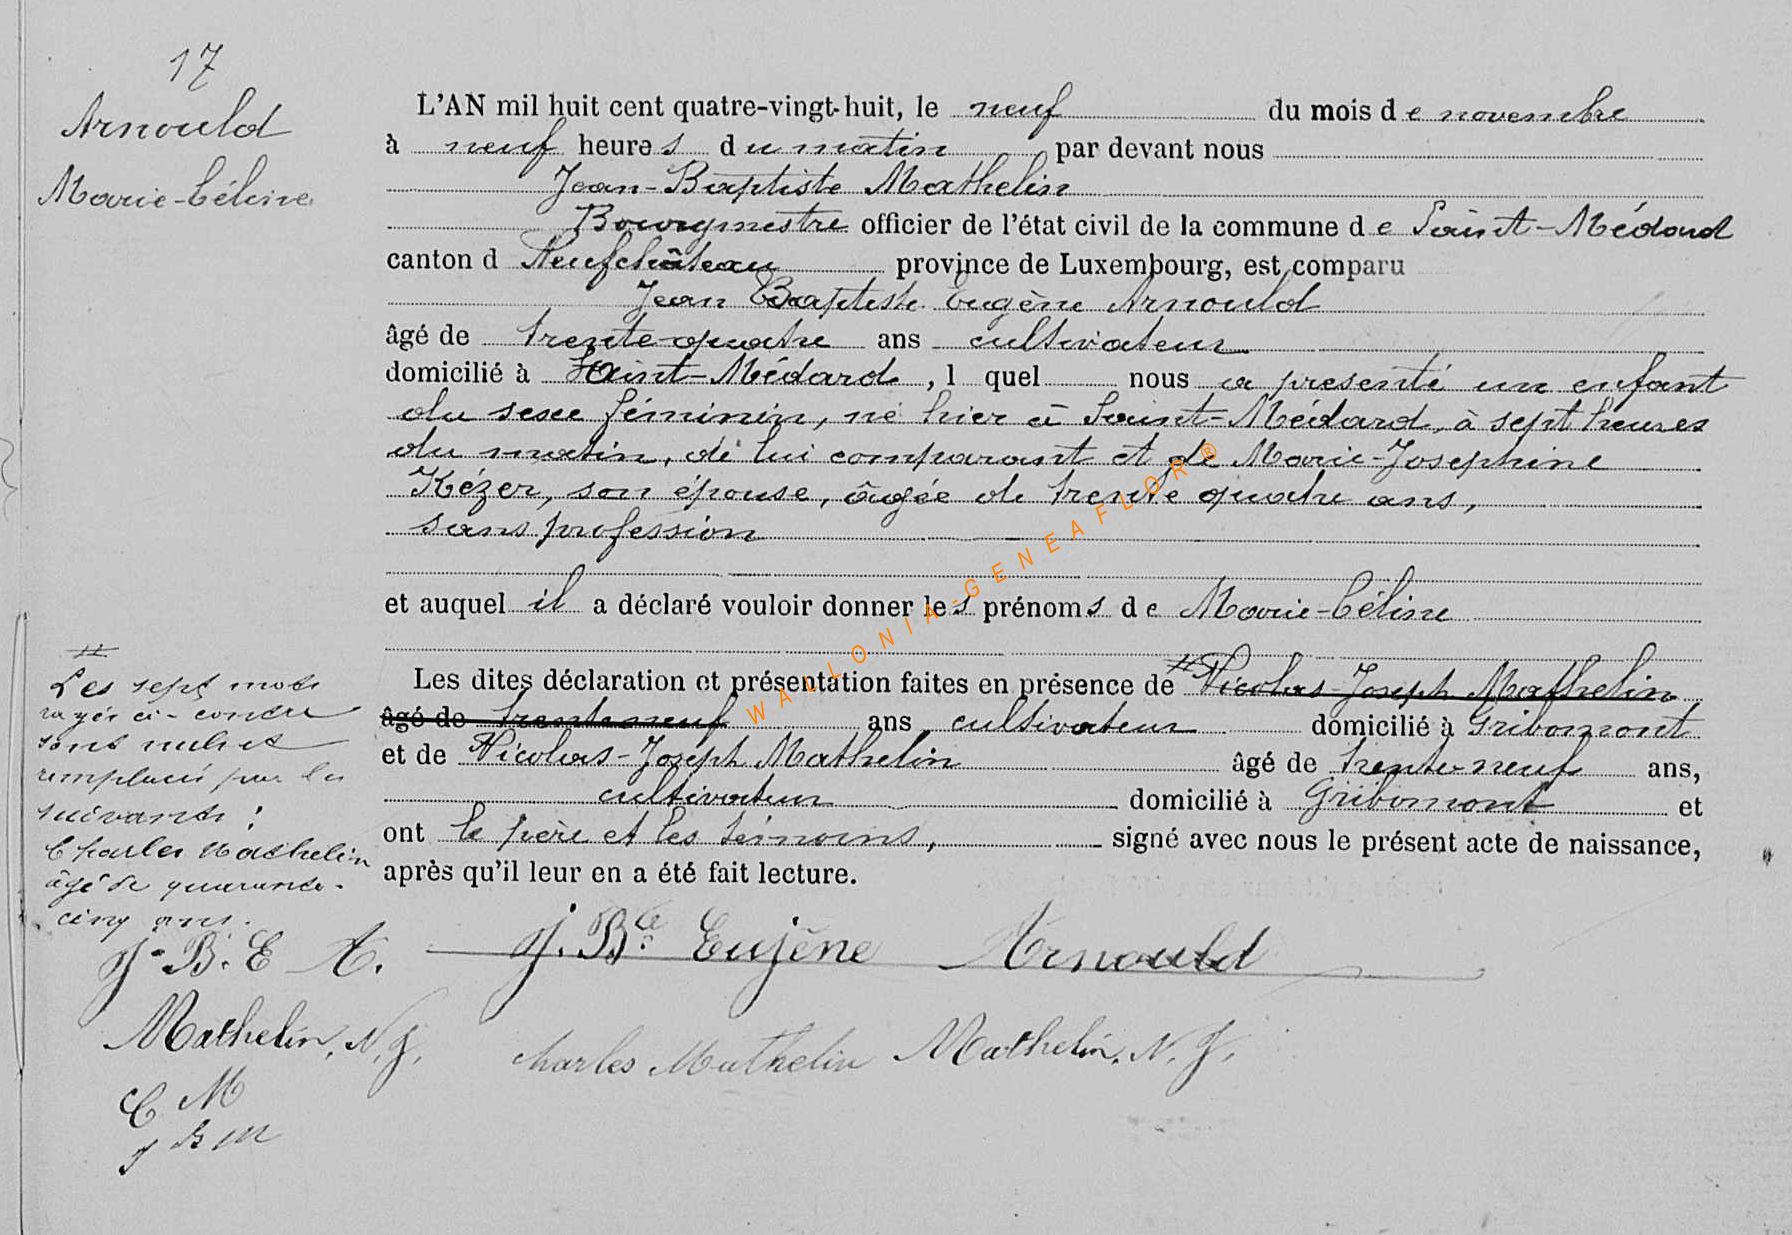 17
Arnould
Marie-Céline
L'AN mil huit cent quatre-vingt-huit, le neuf du mois de novembre
à neuf heures du matin par devant nous
Jean-Baptiste Mathelin
Bourgmestre officier de l'état civil de la commune de Saint-Médard
canton d Neufchâteau province de Luxembourg, est comparu
Jean Baptiste Eugène Arnould
âgé de trente-quatre ans cultivateur
domicilié à Saint-Médard, l quel nous a presenté un enfant
du sexe féminin, né hier à Saint-Médard, à sept heures
du matin, de lui comparant et de Marie-Josephine
Kézer, son épouse, âgée de trente quatre ans,
sans profession
et auquel il a déclaré vouloir donner les prénoms de Marie-Céline
Les dites déclaration et présentation faites en présence de # Nicolas-Joseph Mathelin
âgé de trente-neuf ans cultivateur domicilié à Gribomont
et de Nicolas-Joseph Mathelin âgé de trente-neuf ans,
cultivateur domicilié à Gribomont et
ont le père et les témoins, signé avec nous le présent acte de naissance,
après qu'il leur en a été fait lecture.
#
Les sept mots
rayés ci-contre
sont nuls et
remplacés par les
suivants :
Charles Mathelin
âgé de quarante-
cinq ans.
J. B. E A.
J. Bte Eugène Arnould
Mathelin, N. J.
Charles Mathelin Mathelin, N. J.
C M
J B M
WALLONIA-GENEAFLOR ®